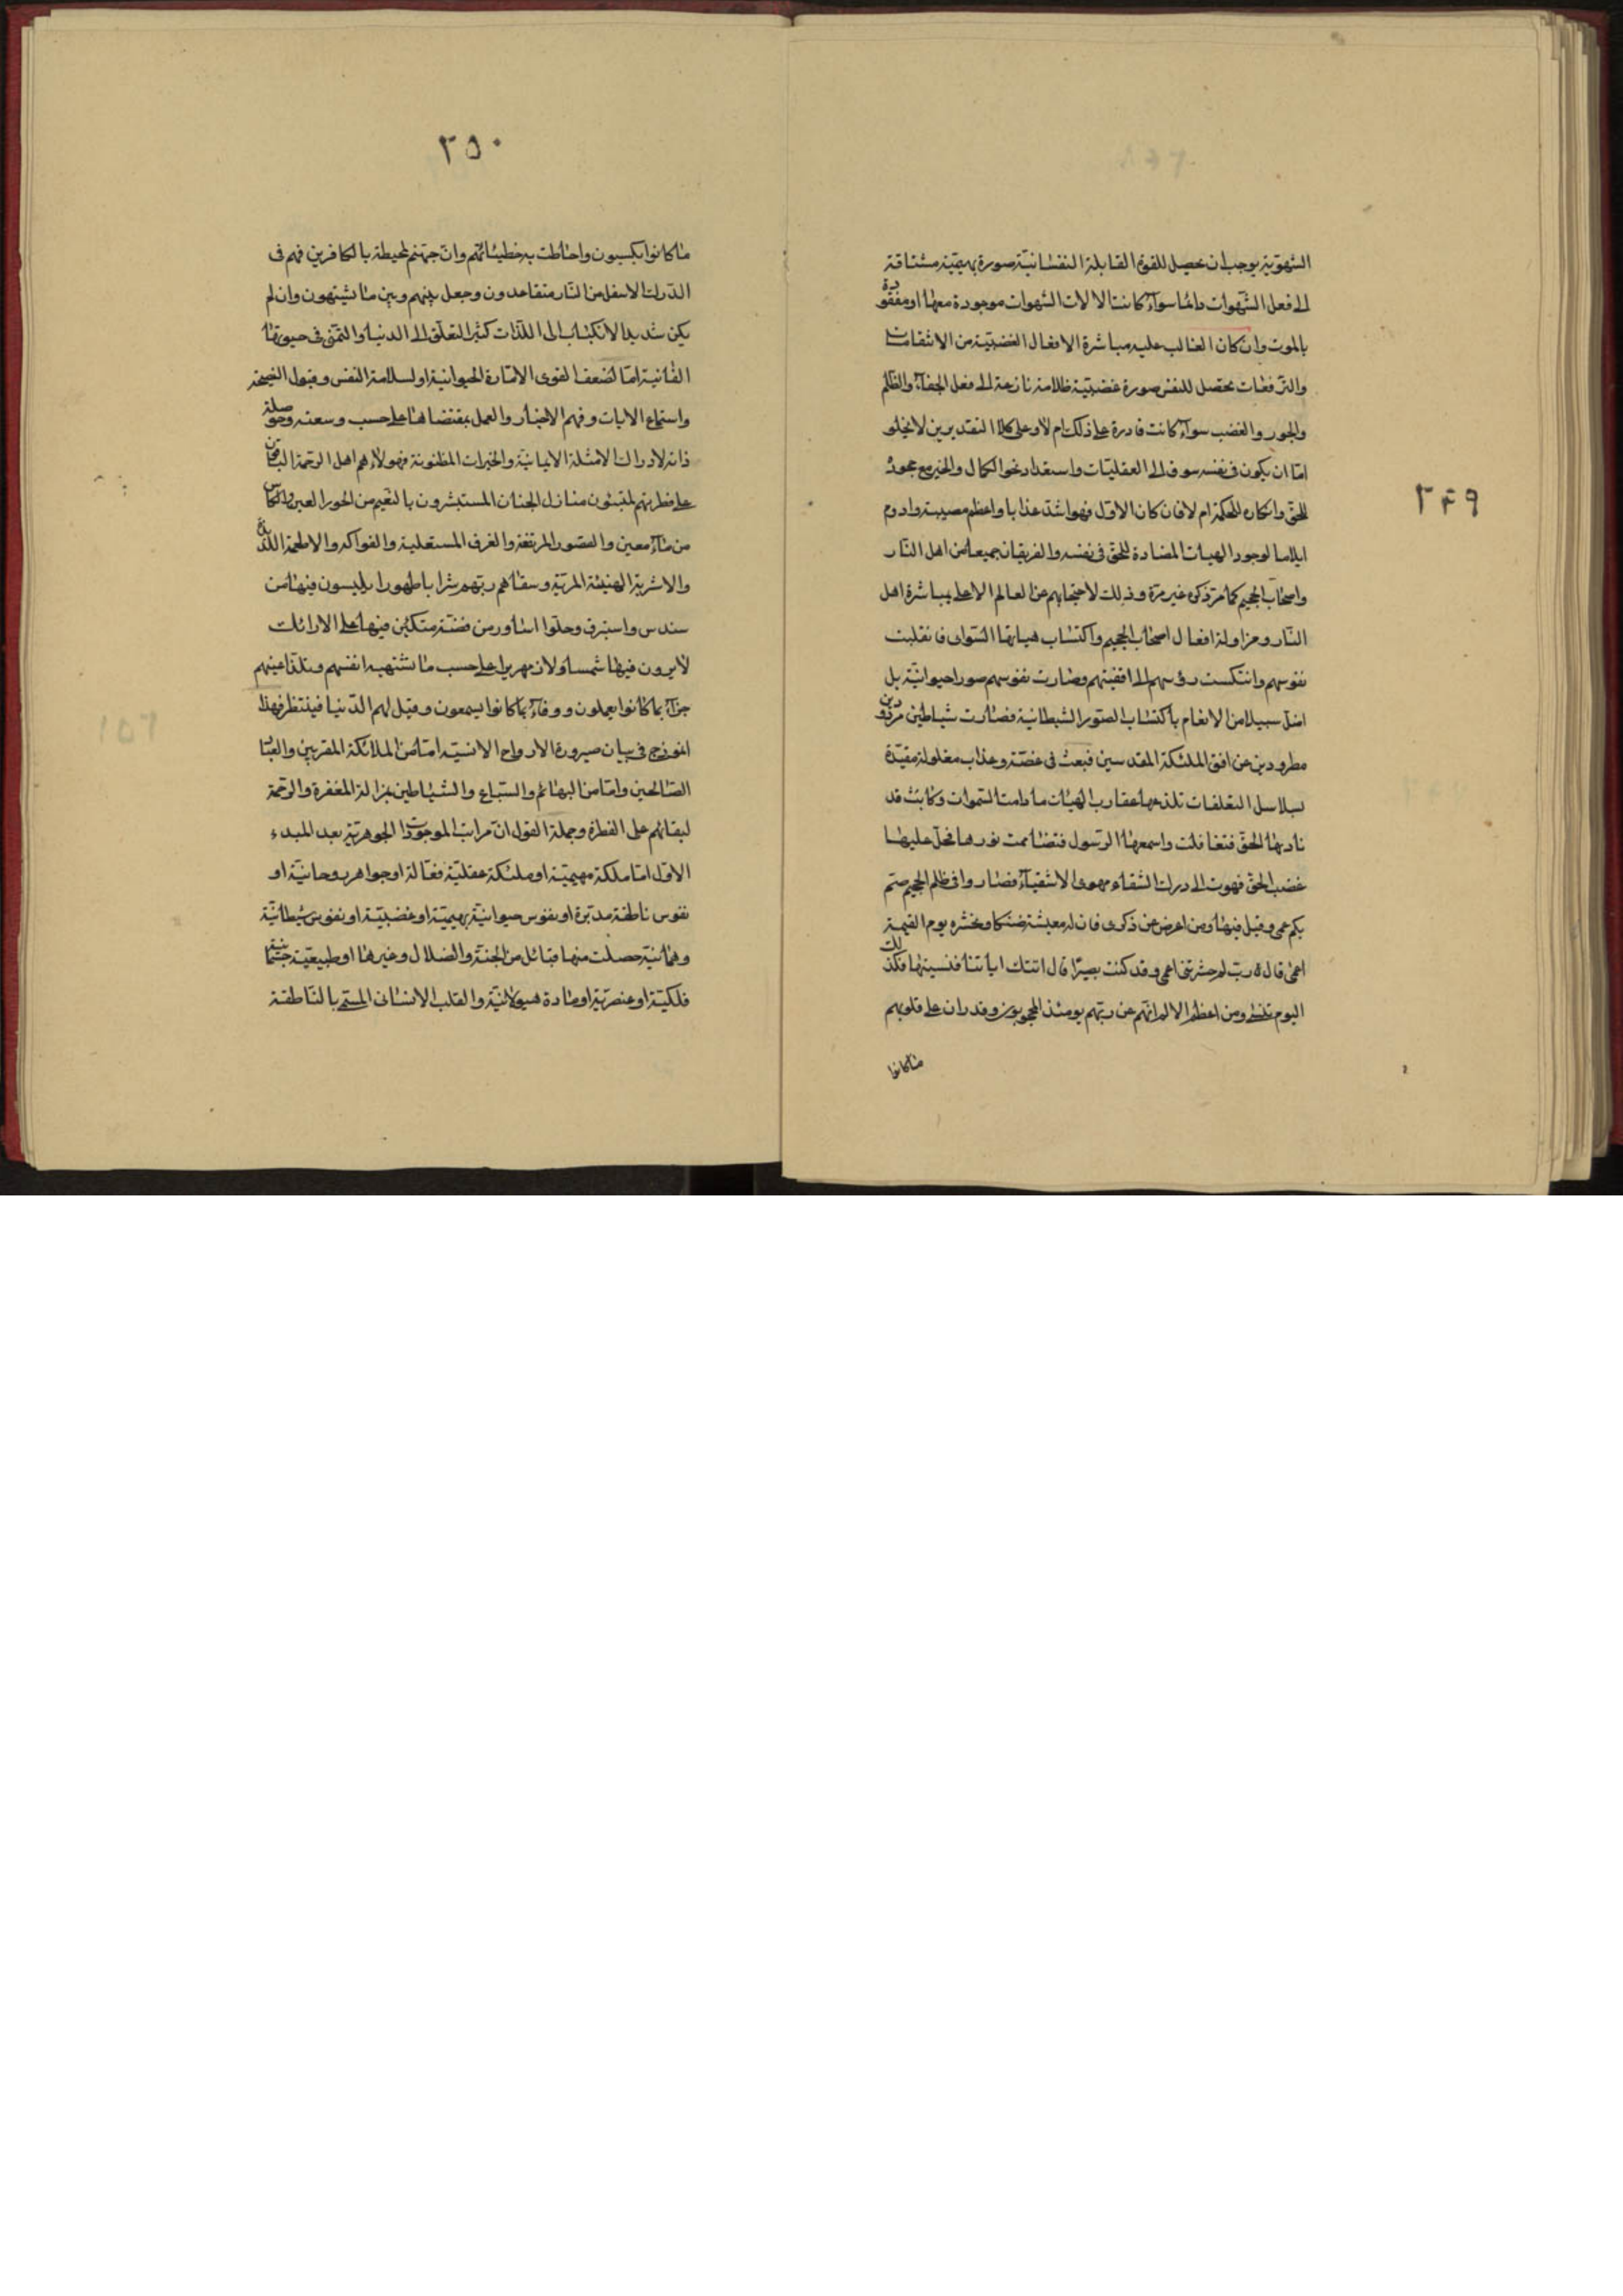 ٢٤٩
الشهوّية يوجب ان يحصل للقوة القابلة النفسانيّة صورة بهيميّة مشتاقة
الى فعل الشّهوات دائما سوآء كانت الالات الشهوات موجودة معها او مفقودة
بالموت وان كان الغالب عليه مباشرة الافعال الغضبيّة من الانتقامات
والترفعات تحصل للنفس صورة غضبيّة ظلامة نازعة الى فعل الجفآء والظّلم
والجور والغضب سوآء كانت قادرة على ذلك ام لا وعلى كلا التقديرين لا يخلو
امّا ان يكون فى نفسه سوق الى العقليّات واستعداد نحو الكمال والخير مع جحود
للحقّ وانكاره للحكمة ام لا فان كان الاوّل فهو اشدّ عذابا واعظم مصيبة وادوم
ايلاما لوجود الهيات المضادة للحقّ فى نفسه والفريقان جميعا من اهل النّار
واصحاب الجحيم كما مرّ ذكره غير مرّة وذلك لاحتجابهم عن العالم الاعلى بمباشرة اهل
النّار ومزاولة افعال اصحاب الجحيم واكتساب هياتها السّوآى فانقلبت
نفوسهم وانتكست رؤسهم الى اقفيتهم وصارت نفوسهم صورا حيوانيّة بل
اضلّ سبيلا من الانعام باكتساب الصّور الشيطانية فصارت شياطين مردودين
مطرودين عن افق الملئكة المقدسين فبعث فى غصّة وعذاب مغلولة مقيّدة
بسلاسل التعلقات تلذعها عقارب الهيات ما دامت السّموات وكانت قد
ناديها الحقّ فتغافلت واسمعها الرّسول فتصاممت نورها فحلّ عليها
غضب الحقّ فهوت الى دركات الشّقاء مهوى الاشقيآء فصاروا فى ظلم الجحيم صمّ
بكم عمى وقيل فيها ومن اعرض عن ذكرى فان له معيشة ضنكا ونحشره يوم القيمة
اعمى قال ربّ لم حشرتنى اعمى وقد كنت بصيرًا قال اتتك اياتنا فنسيتها فكذلك
اليوم تنسى ومن اعظم الالام انّهم عن ربّهم يومئذ لمحجوبون وقد ران على قلوبهم
ما كانوا
٢٥٠
ما كانوا يكسبون واحاطت به خطيئاتهم وانّ جهنّم لمحيطة بالكافرين فهم فى
الدّرك الاسفل من النّار متقاعدون وجعل بينهم وبين ما يشتهون وان لم
يكن شديد الانكباب الى اللّذّات كثير التعلّق الى الدنيا والتمنّى فى حيوتها
الفانية امّا لضعف القوى الامّارة الحيوانية او لسلامة النفس وقبول النصيحة
واستماع الايات وفهم الاخبار والعمل بمقتضاها على حسب وسعته وحوصلة
ذاته لادراك الامثلة الايمانيّة والخيرات المظنونة فهولاء هم اهل الرحمة الباقين
على فطرتهم لمتبئون منازل الجنان المستبشرون بالنّعيم من الحور العين والكأس
من مآء معين والقصور المرتفعة والغرف المستعلية والفواكه والاطعمة اللذيذة
والاشربة الهنيئة المريّة وسقاهم ربّهم شرابا طهورا يلبسون فيها من
سندس واستبرق وحلّوا اساور من فضّة متكئين فيها على الارائك
لا يرون فيها شمسا ولا زمهريرا على حسب ما تشتهيه انفسهم وتلذّ اعينهم
جزآء بما كانوا يعملون ووفآء بما كانوا يسمعون وقيل لهم الدّنيا فينتظر فهذا
انموزج فى بيان صيرورة الارواح الانسيّة امّا من الملائكة المقربين والعباد
الصّالحين وامّا من البهائم والسّباع والشياطين بمزالة المغفرة والرّحمة
لبقائهم على الفطرة وجملة القول انّ مراتب الموجودات الجوهريّة بعد المبدء
الاوّل امّا ملكة مهيميّة او ملئكة عقليّة فعّالة او جواهر روحانيّة او
نفوس ناطقة مدبّرة او نفوس حيوانيّة بهيميّة او غضبيّة او نفوس شيطانيّة
وهمانيّة حصلت منها قبائل من الجنّة والضلال وغيرها او طبيعيّة جسمانية
فلكيّة او عنصريّة او مادة هيولانيّة والقلب الانسانى المسمّى بالنّاطقة